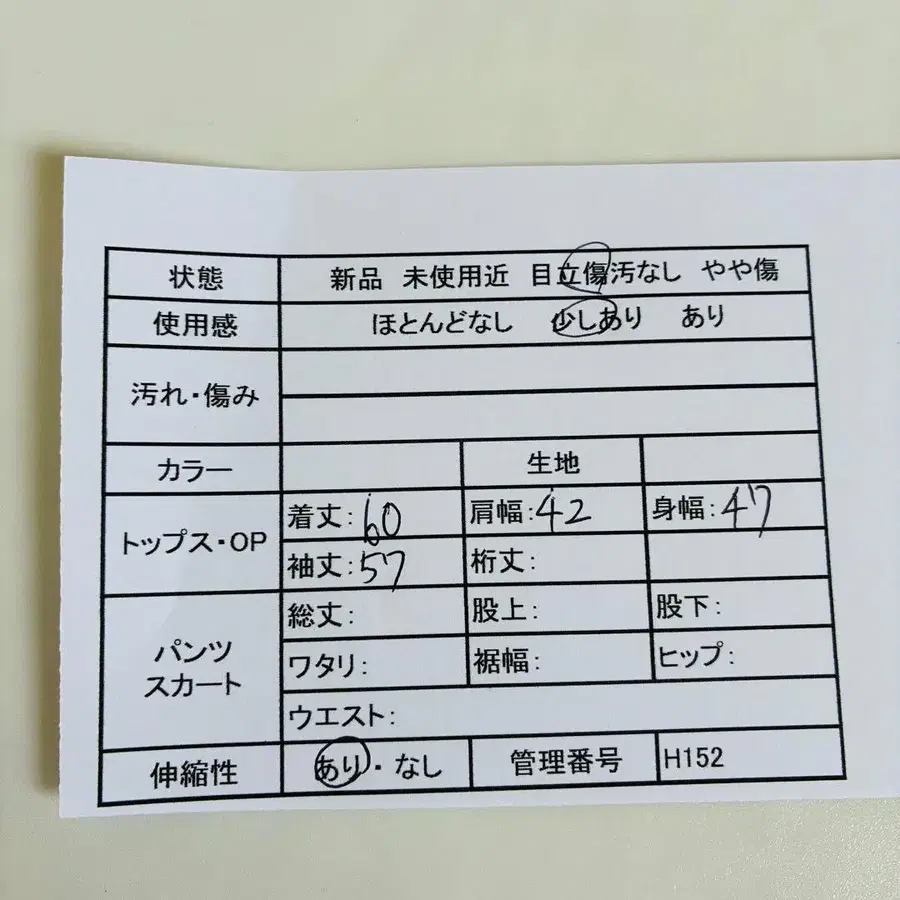 状態 新品 未使用近 目立傷汚なし やや傷
使用感 ほとんどなし 少しあり あり
汚れ・傷み
カラー 生地
トップス・OP
着丈:60 肩幅:42 身幅:47
袖丈:57 裄丈:
パンツ
スカート
総丈: 股上: 股下:
ワタリ: 裾幅: ヒップ:
ウエスト:
伸縮性 あり・なし 管理番号 H152